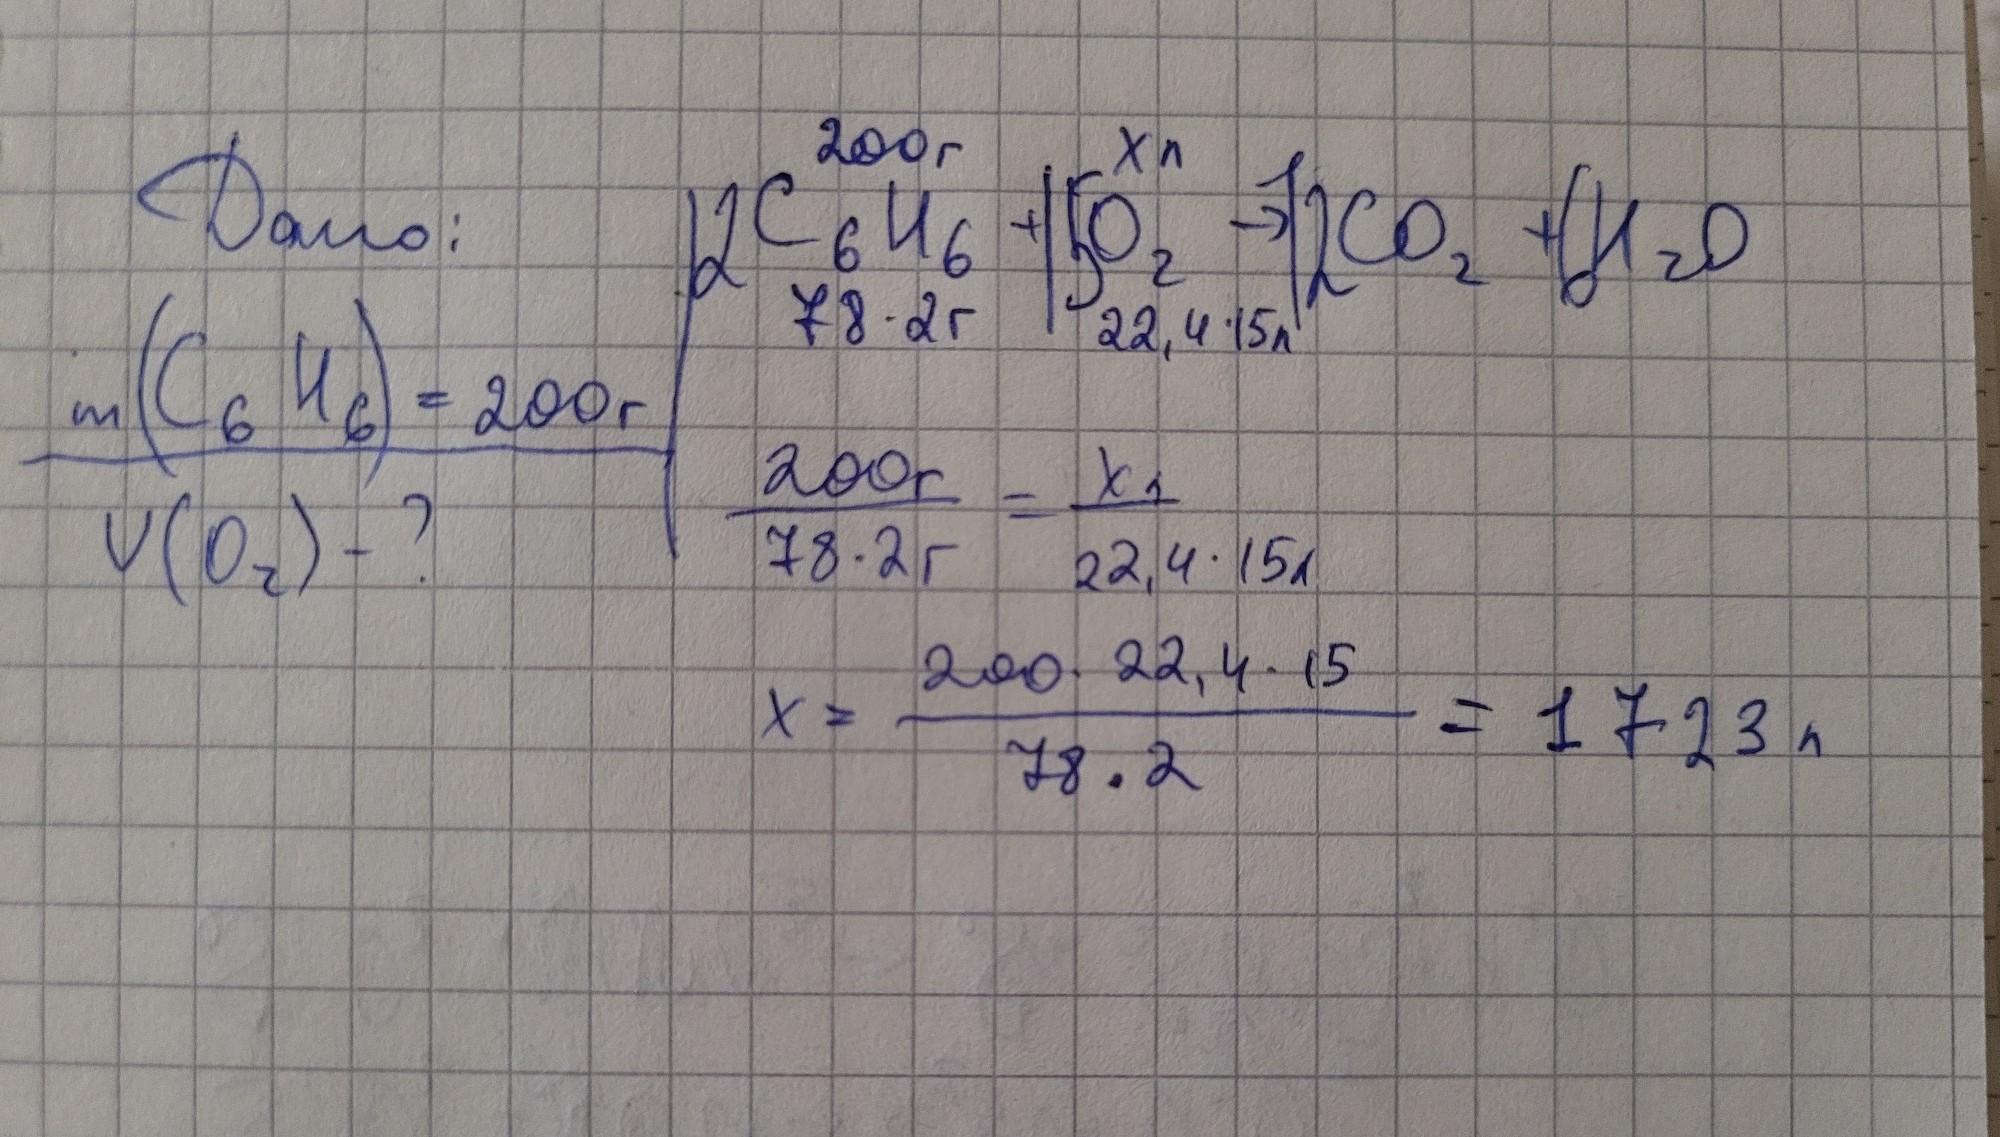 Дано:
m(C₆H₆) = 200г
V(O₂) - ?
200г xл
2C₆H₆ + 15O₂ → 12CO₂ + 6H₂O
78·2г 22,4·15л
200г / 78·2г = xл / 22,4·15л
x = 200·22,4·15 / 78·2 = 1723л